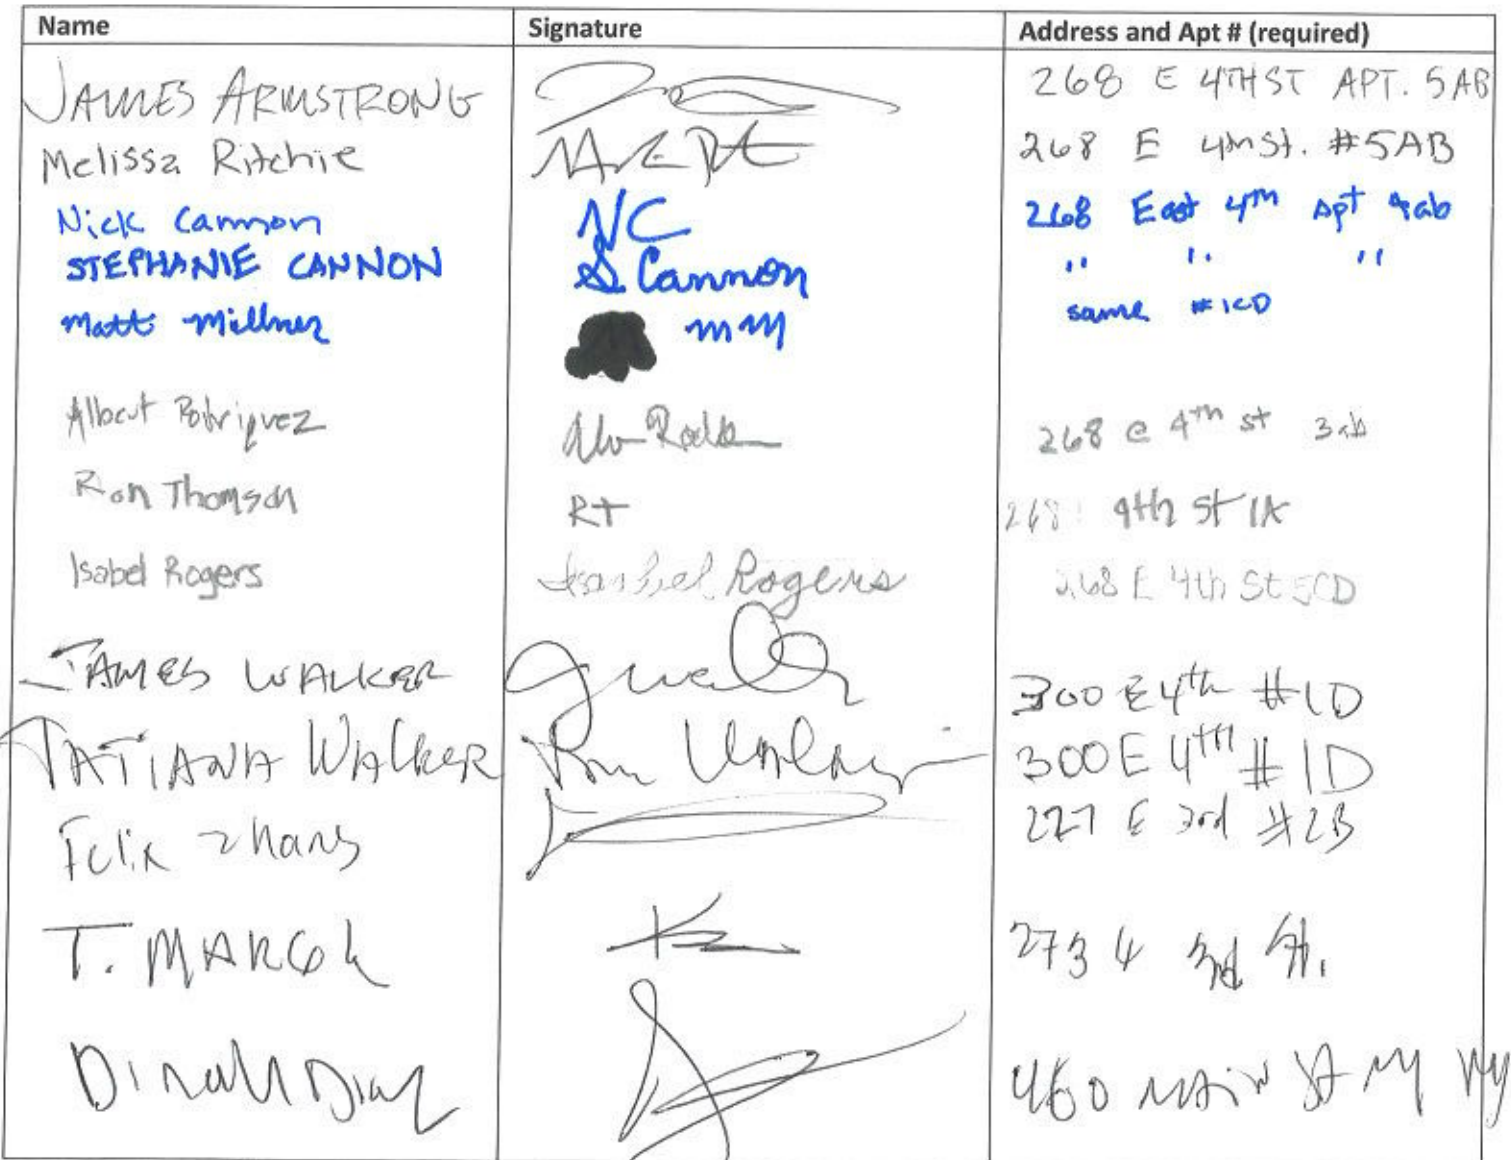 Name Signature Address and Apt # (required)
JAMES ARMSTRONG 268 E 4TH ST APT. 5AB
Melissa Ritchie 268 E 4th St. #5AB
Nick Cannon NC 268 East 4th Apt 4ab
STEPHANIE CANNON S Cannon " " "
Matt Millner MM same #1CD
Albert Rodriquez 268 e 4th st 3ab
Ron Thomson RT 268 4th St 1A
Isabel Rogers Isabel Rogers 268 E 4th St 5CD
JAMES WALKER 300 E 4th #1D
TATIANA WALKER 300 E 4th #1D
Felix Zhang 227 E 3rd #2B
T. 273 3rd St.
460 MAIN St NY NY